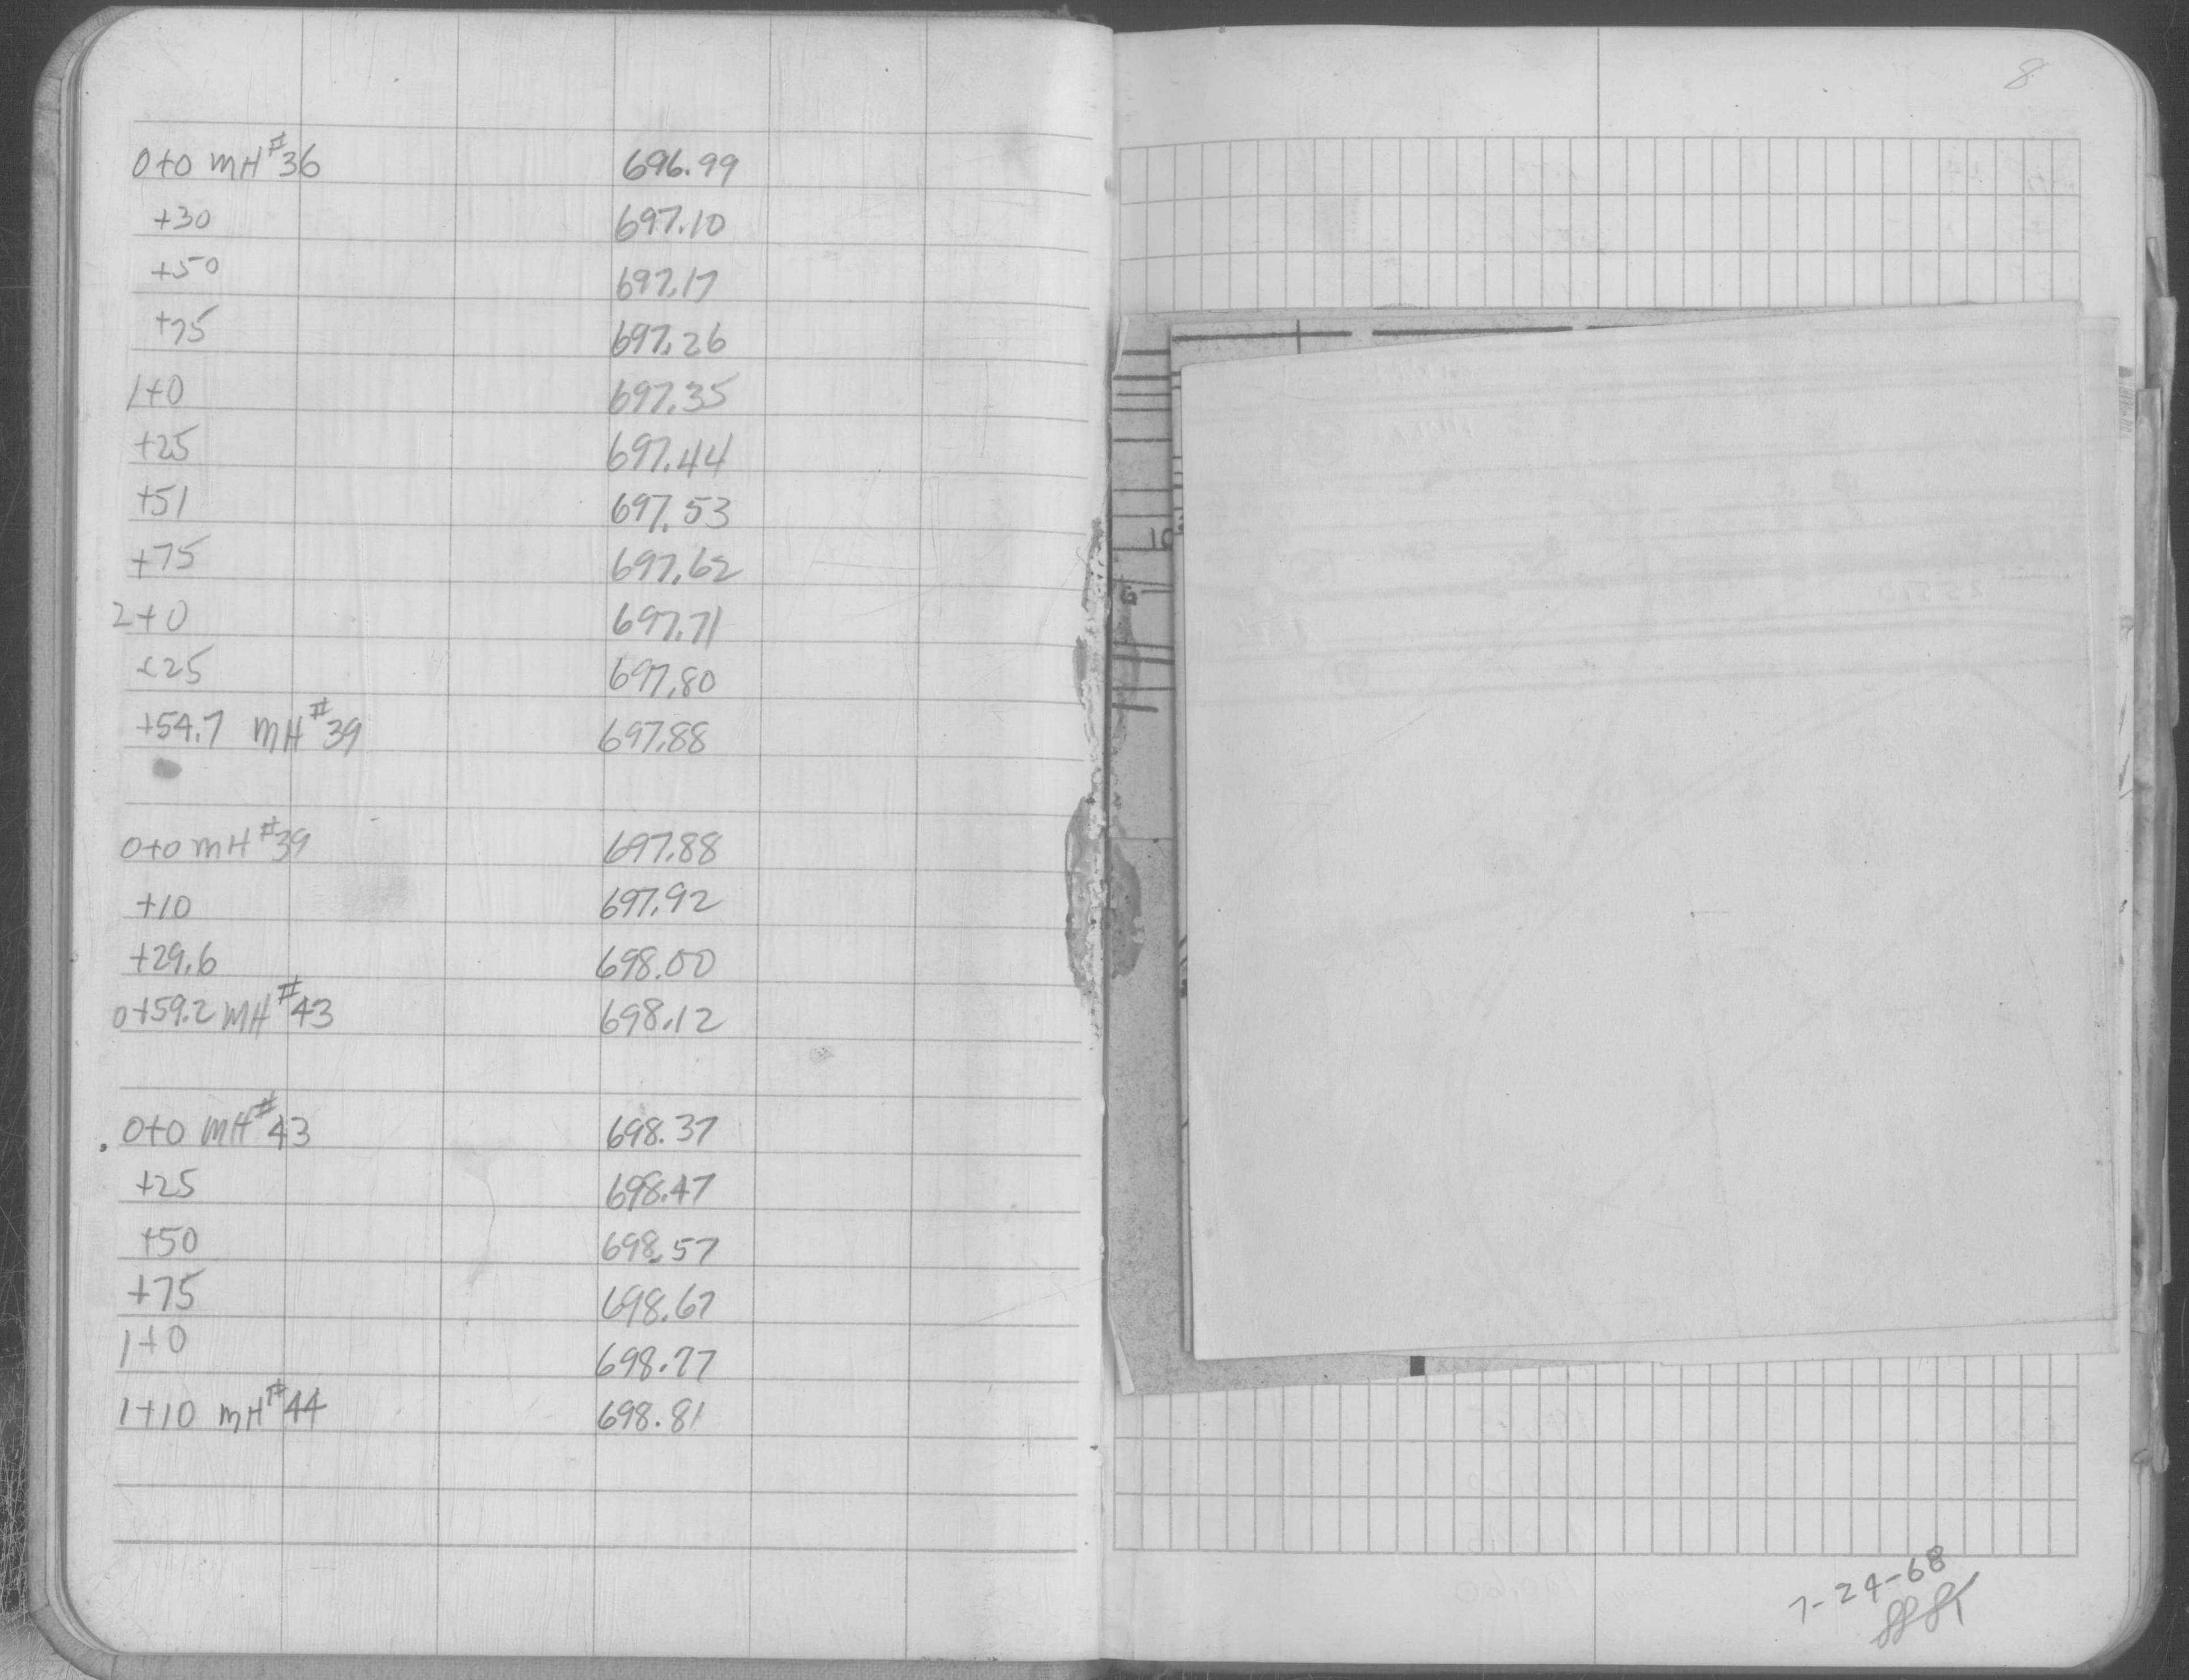 0+0 MH#36 696.99
+30 697.10
+50 697.17
+75 697.26
1+0 697.35
+25 697.44
+51 697.53
+75 697.62
2+0 697.71
+25 697.80
+54.7 MH#39 697.88
0+0 MH#39 697.88
+10 697.92
+29.6 698.00
0+59.2 MH#43 698.12
0+0 MH#43 698.37
+25 698.47
+50 698.57
+75 698.67
1+0 698.77
1+10 MH#44 698.81
8
7-24-68